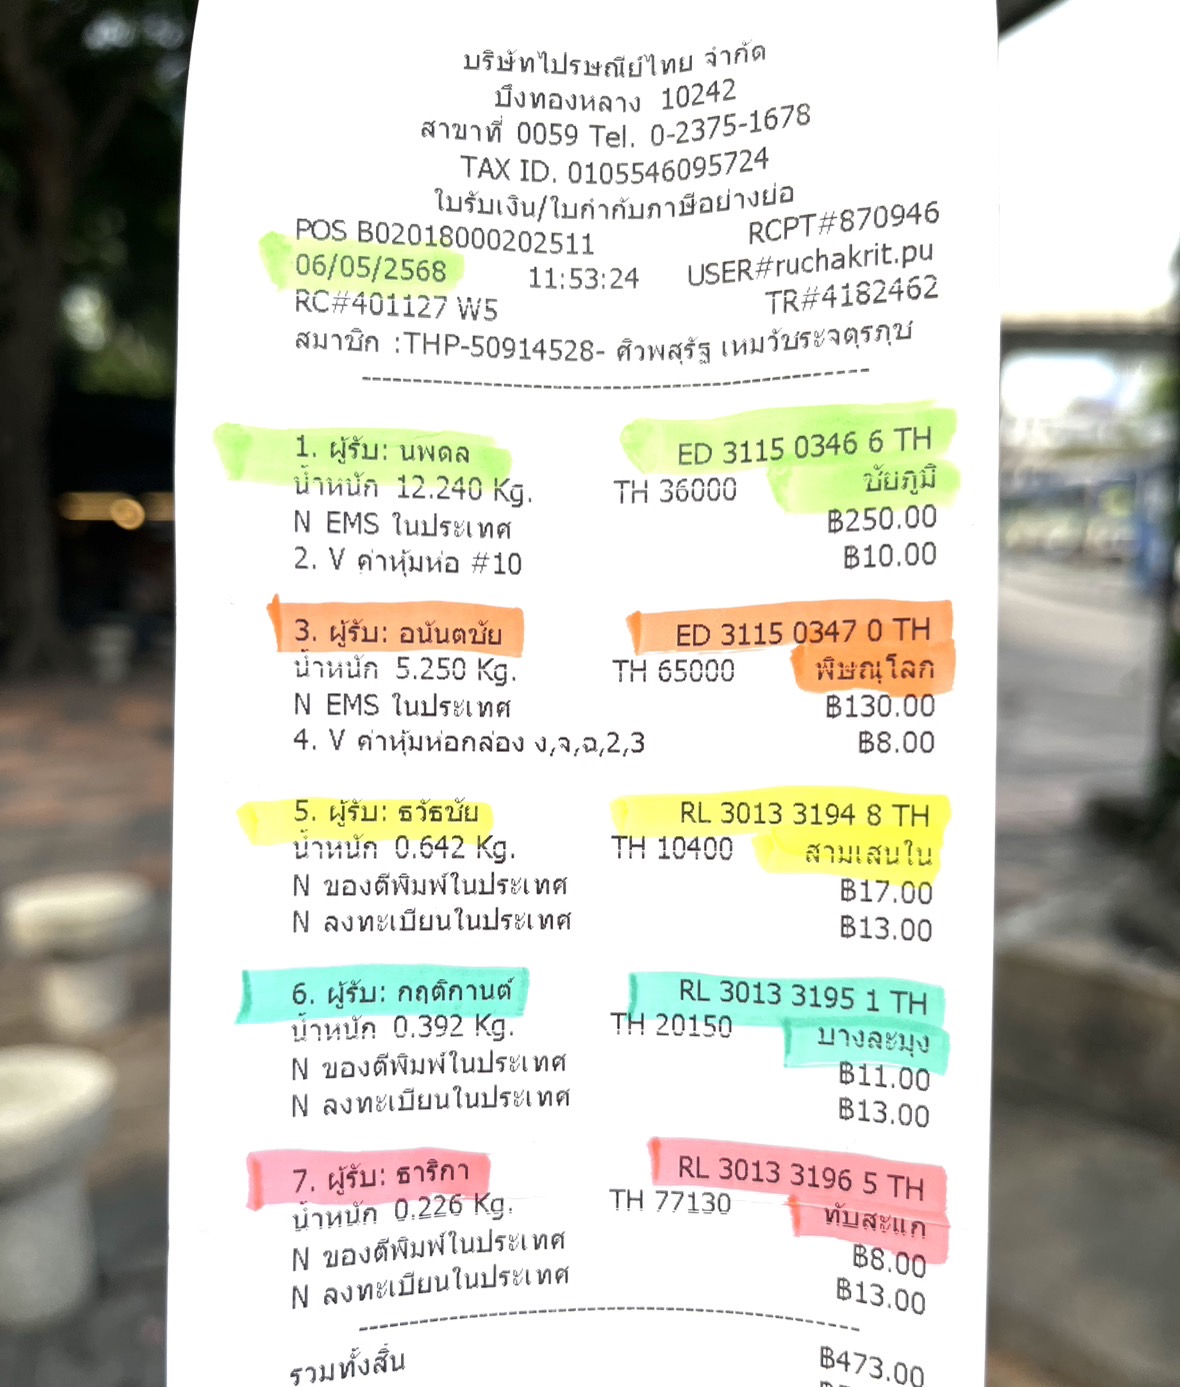 บริษัทไปรษณีย์ไทย จำกัด
บึงทองหลาง 10242
สาขาที่ 0059 Tel. 0-2375-1678
TAX ID. 0105546095724
ใบรับเงิน/ใบกำกับภาษีอย่างย่อ
POS B02018000202511 RCPT#870946
06/05/2568 11:53:24 USER#ruchakrit.pu
RC#401127 W5 TR#4182462
สมาชิก :THP-50914528- ศิวพสุรัฐ เหมวัชระจตุรภุช
1. ผู้รับ: นพดล ED 3115 0346 6 TH
น้ำหนัก 12.240 Kg. TH 36000 ชัยภูมิ
N EMS ในประเทศ ฿250.00
2. V ค่าหุ้มห่อ #10 ฿10.00
3. ผู้รับ: อนันตชัย ED 3115 0347 0 TH
น้ำหนัก 5.250 Kg. TH 65000 พิษณุโลก
N EMS ในประเทศ ฿130.00
4. V ค่าหุ้มห่อกล่อง ง,จ,ฉ,2,3 ฿8.00
5. ผู้รับ: ธวัธชัย RL 3013 3194 8 TH
น้ำหนัก 0.642 Kg. TH 10400 สามเสนใน
N ของตีพิมพ์ในประเทศ ฿17.00
N ลงทะเบียนในประเทศ ฿13.00
6. ผู้รับ: กฤติกานต์ RL 3013 3195 1 TH
น้ำหนัก 0.392 Kg. TH 20150 บางละมุง
N ของตีพิมพ์ในประเทศ ฿11.00
N ลงทะเบียนในประเทศ ฿13.00
7. ผู้รับ: ธาริกา RL 3013 3196 5 TH
น้ำหนัก 0.226 Kg. TH 77130 ทับสะแก
N ของตีพิมพ์ในประเทศ ฿8.00
N ลงทะเบียนในประเทศ ฿13.00
รวมทั้งสิ้น ฿473.00